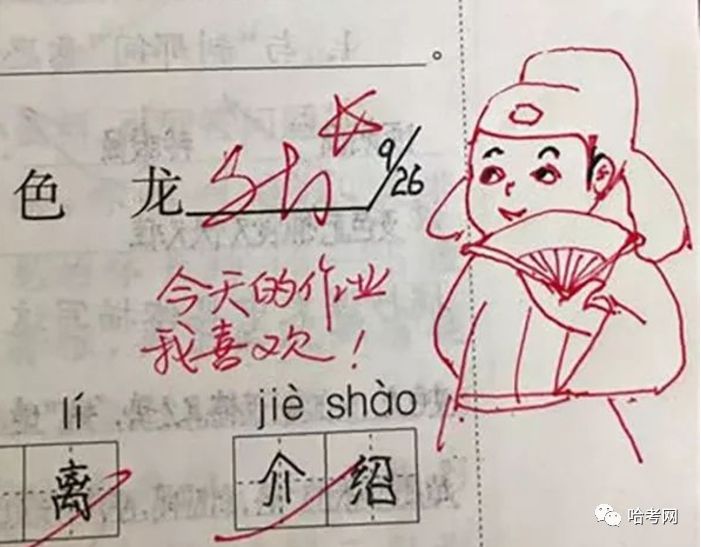 。
色 龙 好
9/26
今天的作业
我喜欢！
lí jiè shào
离 介绍
哈考网